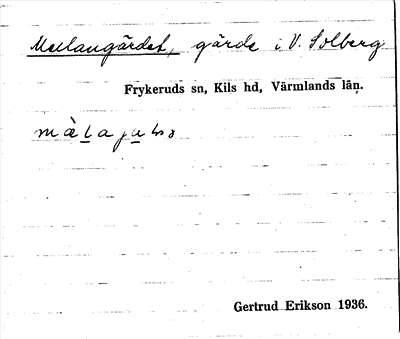 Mellangärdet, gärde i V. Solberg
Frykeruds sn, Kils hd, Värmlands län.
Gertrud Erikson 1936.